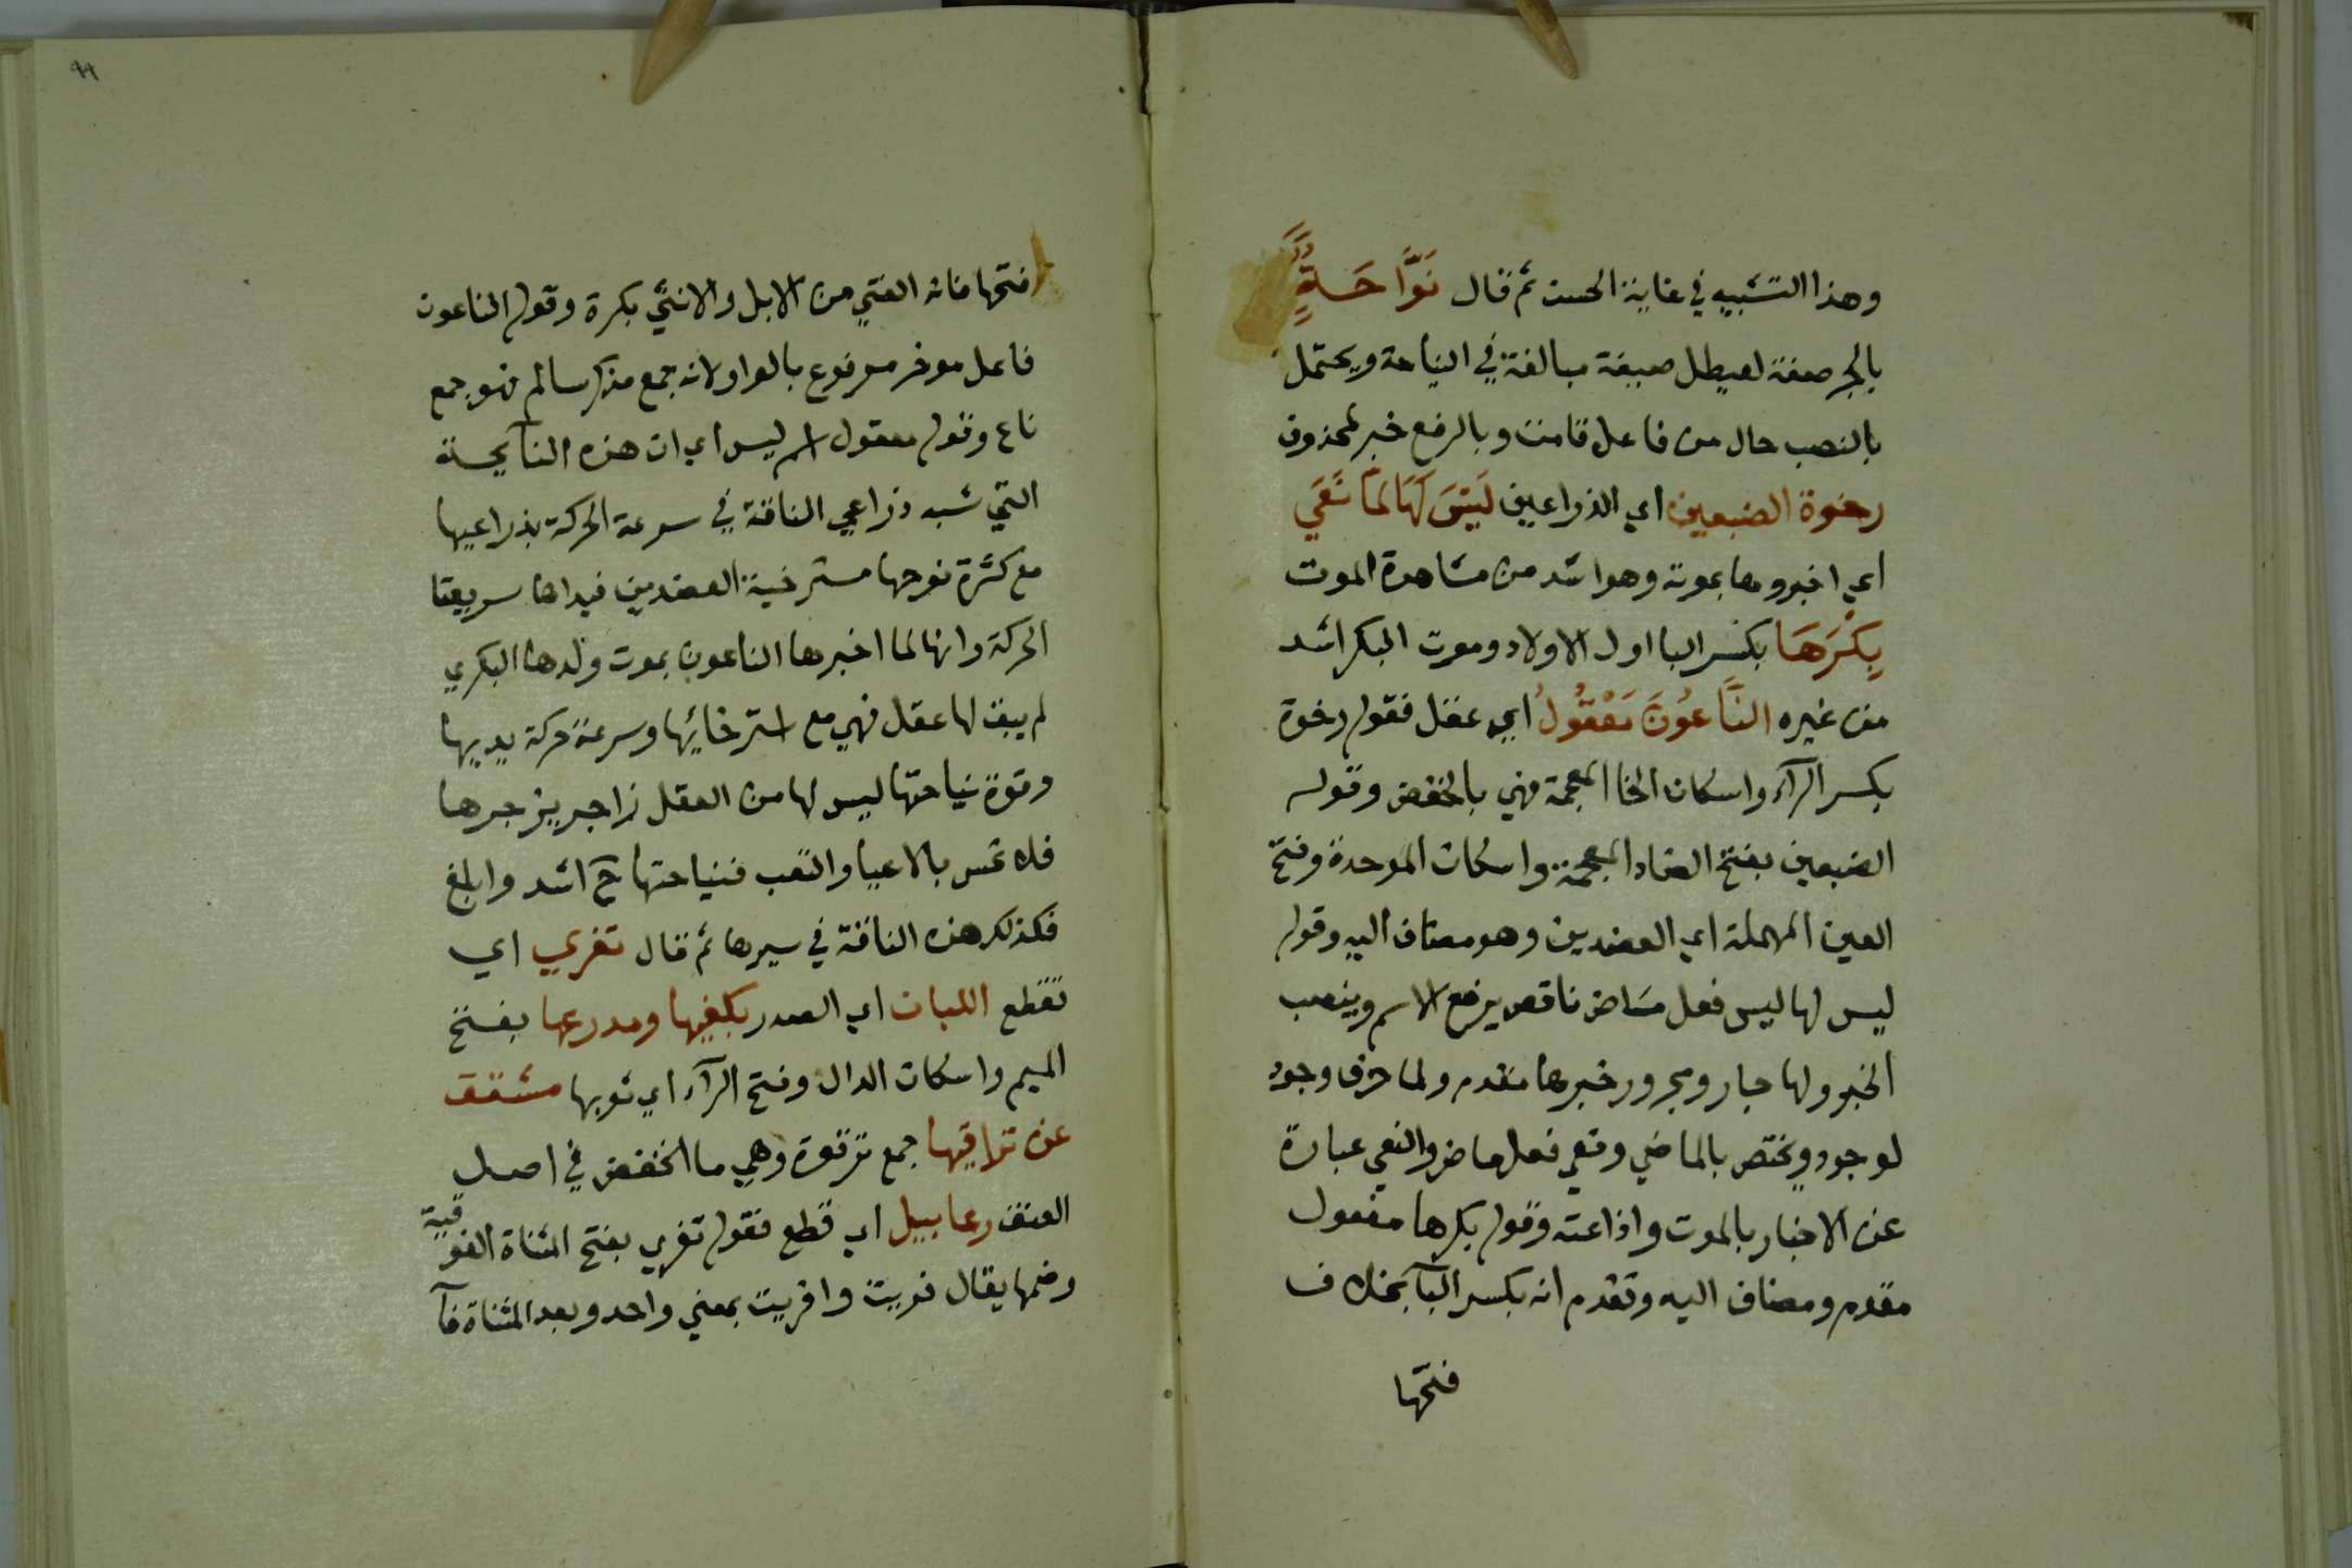 وهذا التشبيه في غاية الحسن ثم قال نَوَّاحَةٍ
بالجر صفة لعيطل صيغة مبالغة في النياحة ويحتمل
بالنصب حال من فاعل قامت وبالرفع خبر لمحذوف
رخوة الضبعين اي الذراعين لَيْسَ لَهَا لَمَّا نَعَي
اي اخبروها بموته وهو اشد من مشاهدة الموت
بِكْرَهَا بكسر البا اول الاولاد وموت البكر اشد
من غيره النَّاعُونَ مَعْقُولُ اي عقل فقوله رخوة
بكسر الرآء واسكان الخا المعجمة فهي بالخفض وقوله
الضبعين بفتح الضاد المعجمة واسكان الموحدة وفتح
العين المهملة اي العضدين وهو مضاف اليه وقوله
ليس لها ليس فعل مَاض ناقص يرفع الاسم وينصب
الخبر ولها جار ومجرور خبرها مقدم ولما حرف وجود
لوجود ويختص بالماضي ونعي فعل ماض والنعي عبارة
عن الاخبار بالموت واذاعته وقوله بكرها مفعول
مقدم ومضاف اليه وتقدم انه بكسر البآ بخلاف
فتحها
٩٩
فتحها فانه الفتي من الابل والانثي بكرة وقوله الناعون
فاعل موخر مرفوع بالواو لانه جمع مذكر سالم فهو جمع
ناع وقوله معقول اسم ليس اي ان هذه النآيحة
التي شبه ذراعي الناقة في سرعة الحركة بذراعيها
مع كثرة نوحها مسترخية العضدين فيداها سريعتا
الحركة وانها لما اخبرها الناعون بموت ولدها البكري
لم يبق لها عقل فهي مع استرخائها وسرعة حركة يديها
وقوة نياحتها ليس لها من العقل زاجر يزجرها
فلا تحس بالاعيا والتعب فنياحتها ح اشد وابلغ
فكذلك هذه الناقة في سيرها ثم قال تفري اي
تقطع اللبان اي الصدر بكفيها ومدرعها بفتح
الميم واسكان الدال وفتح الرآء اي ثوبها مشقق
عن تراقيها جمع ترقوة وهي ما انخفض في اصل
العنق رعابيل اي قطع فقوله تفري بفتح المثناة الفوقية
وضمها يقال فريت وافريت بمعني واحد وبعد المثناة فآ